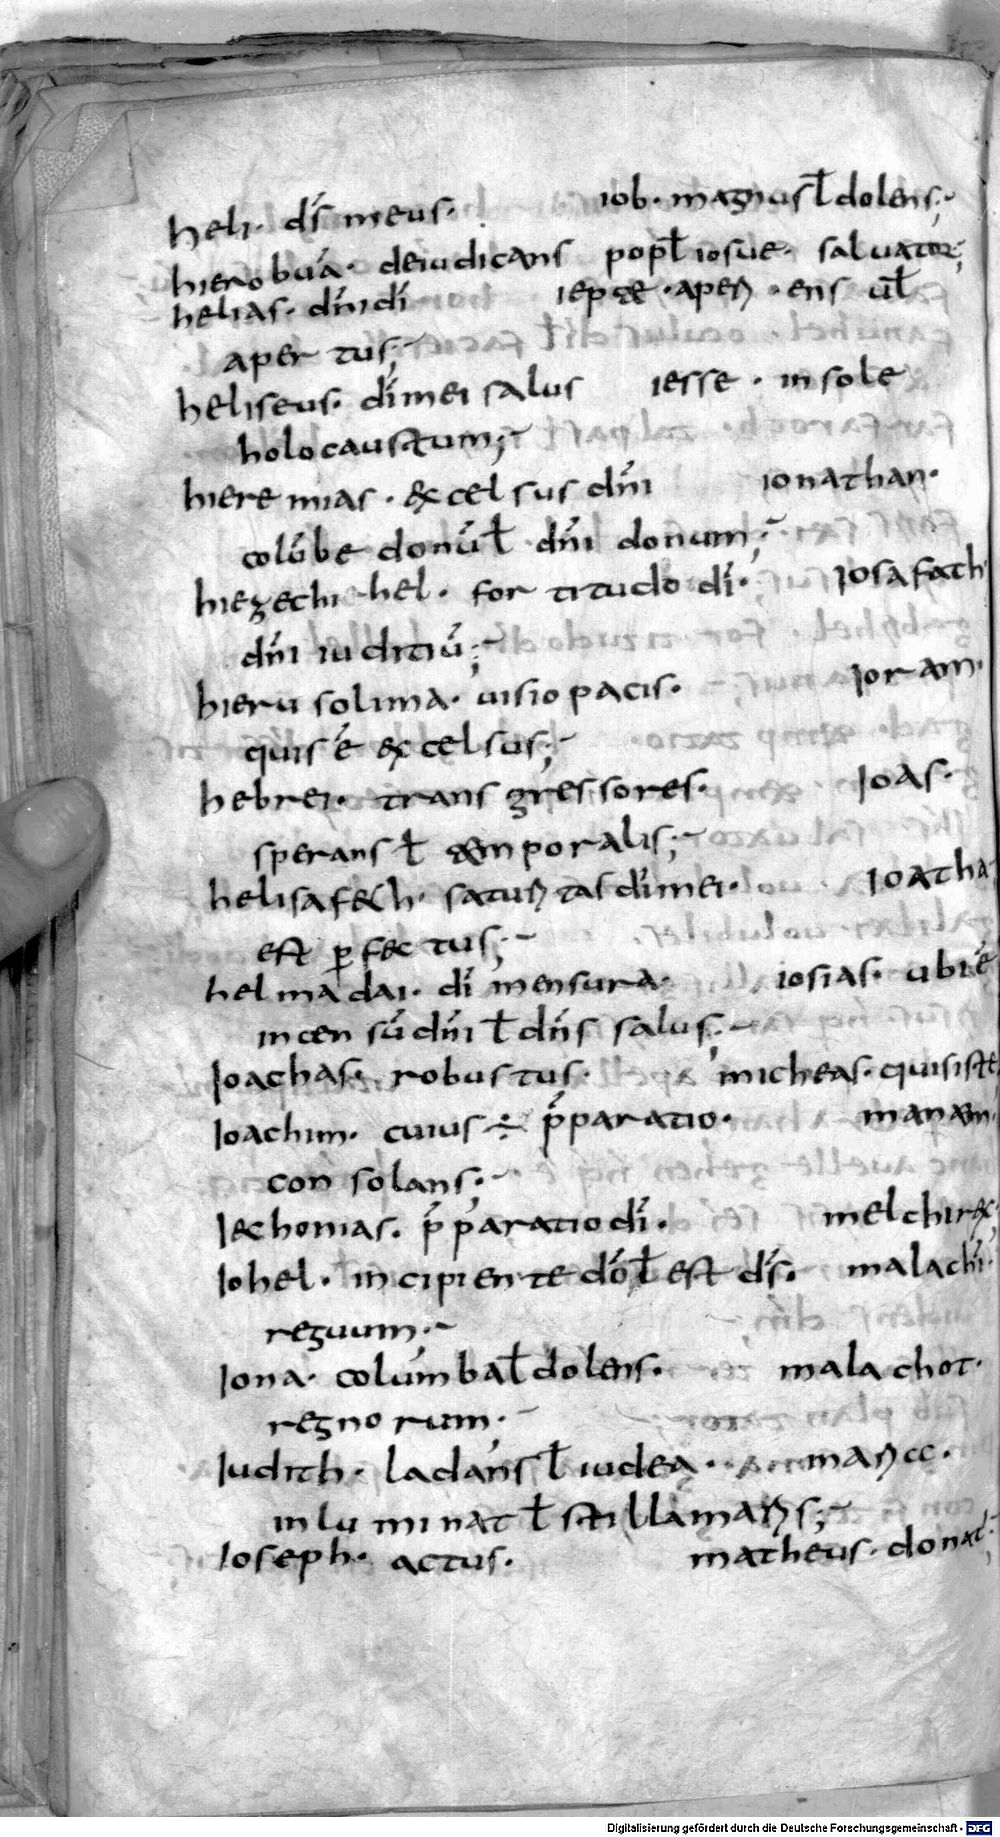 heli· dš meus· iob· magnus ł dolens;
hierobuā· deiudicans popł iosue· saluator;
helias· dn̄i dī iepte · aperi · ens uł
aper tus;
heliseus· dī mei salus iesse · in sole
holocaustum;
hiere mias · excel sus dn̄i ionathan·
colūbe donū ł dn̄i donum;
hiezechi hel · for titudo dī· iosafath
dn̄i iu ditiū;
hieru solima· uisio pacis· ioram·
quis ē excelsus;
hebrei· trans gressores· ioas·
sperans ł tem poralis;
helisafeth· saturitas dī mei· ioatha
est ꝑ fec tus;
hel ma dai· dī mensura· iosias· ubi ē
in cen sū dn̄i ł dn̄s salus;
ioachas· robus tus· micheas· quis iste
ioachim· cuius ÷ p̄paratio· manaem
con solans;
iechonias. p̄ paratio dī· melchi rex;
iohel· in cipi en te dō ł est dš· malachi·
regum;
iona· columba ł dolens· mala chot·
regno rum;
iudith· ladans ł iudea· maricc·
in lu mi nat ł stilla maris;
ioseph· actus· matheus· donat;
Digitalisierung gefördert durch die Deutsche Forschungsgemeinschaft - DFG